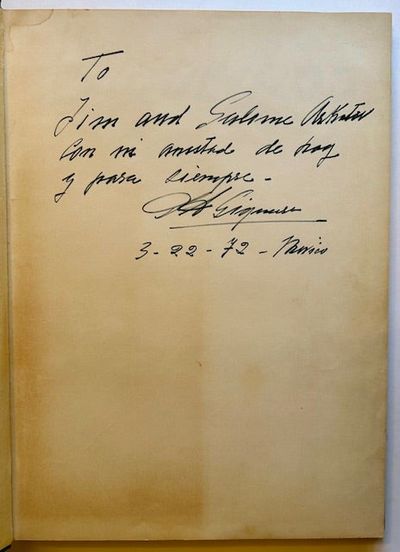 To
Jim and Salome
Con mi amistad de hoy
y para siempre -
Siqueiros
3-22-72 - Mexico